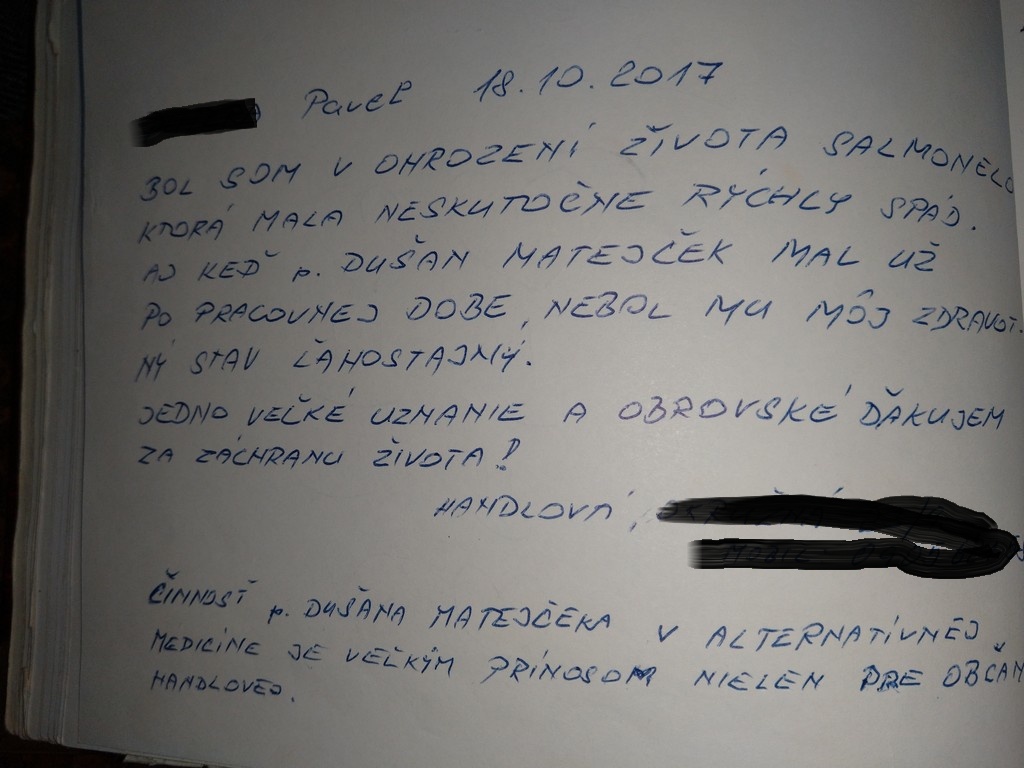 Pavel 18.10.2017
BOL SOM V OHROZENÍ ŽIVOTA SALMONELO
KTORÁ MALA NESKUTOČNE RÝCHLY SPÁD.
AJ KEĎ p. DUŠAN MATEJČEK MAL UŽ
PO PRACOVNEJ DOBE, NEBOL MU MÔJ ZDRAVOT-
NÝ STAV ĽAHOSTAJNÝ.
JEDNO VEĽKÉ UZNANIE A OBROVSKÉ ĎAKUJEM
ZA ZÁCHRANU ŽIVOTA!
HANDLOVÁ,
ČINNOSŤ p. DUŠANA MATEJČEKA V ALTERNATÍVNEJ
MEDICÍNE JE VEĽKÝM PRÍNOSOM NIELEN PRE OBČAN
HANDLOVEJ.